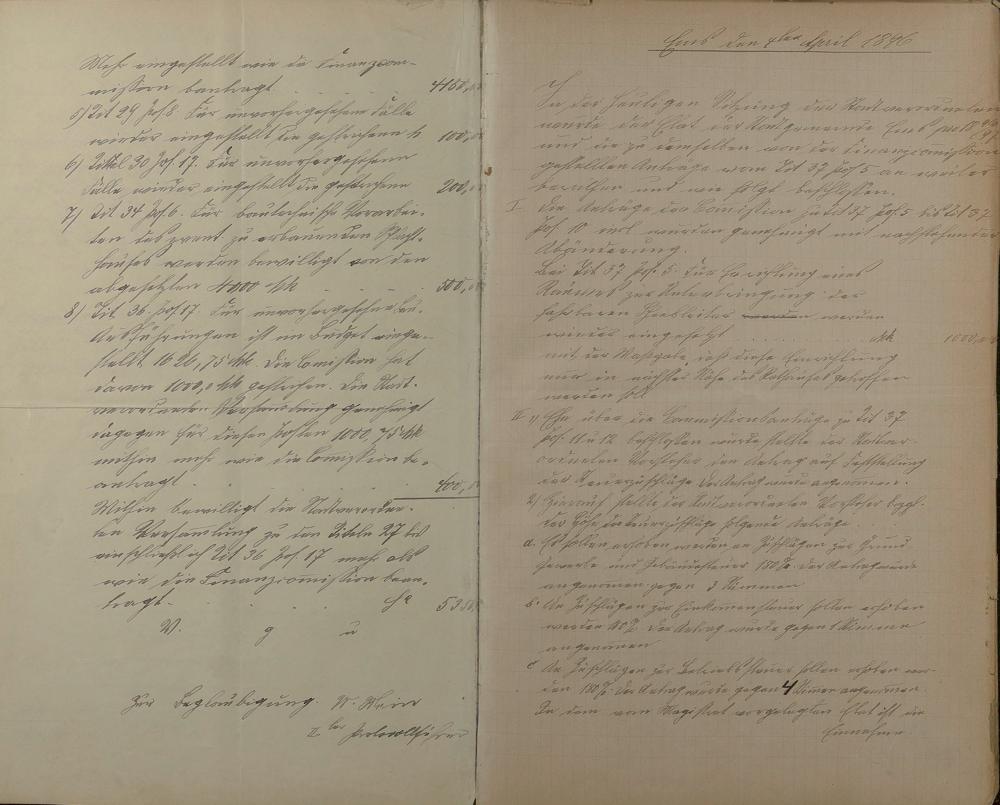 Mehr eingestellt wie die Finanzcom-
mission beantragt . . . . 4150,00
5) Tit 29 Pos 8 Für unvorhergesehene Fälle
wieder eingestellt die gestrichenen M 100,00
6) Tittel 30 Pos. 17. Für unvorhergesehene
Fälle wieder eingestellt die gestrichenen 200,00
7) Tit 34 Pos. 6. Für bautechnische Vorarbei-
ten des event. zu erbauenden Schlacht-
hauses werden bewilligt von den
abgesetzten 4000 Mk . . . 500,00
8) Tit. 36. Pos. 17 Für unvorhergesehene
Ausführungen ist im Budget einge-
stellt 1626,75 Mk. Die Comission hat
davon 1000,0 Mk gestrichen. Die Stadt-
verordneten Versamlung genehmigt
dagegen für diesen Posten 1000,75 Mk
mithin mehr wie die Comission be-
antragt . . . . 400,00
Mithin bewilligt die Stadtverordne-
ten Versamlung zu den Titeln 27 bis
einschließlich Tit 36 Pos. 17 mehr als
wie die Finanzcomission bean-
tragt. . . . Sa 5350,00
V. g u
Zur Beglaubigung
II ter Protocollführer
Ems den 7ten April 1896
In der heutigen Sitzung der Stadtverordneten
wurde der Etat der Stadtgemeinde Ems pro 18
und die zu demselben von der Finanzcomission
gestellten Anträge vom Tit 37 Pos 5 an weiter
berathen und wie folgt beschlossen.
I. Die Anträge der Comission zu Tit 37 Pos. 5 bis Tit 37
Pos. 10 incl. wurden genehmigt mit nachstehender
Abänderung.
Bei Tit 37 Pos. 5. Für Herrichtung eines
Raumes zur Unterbringung der
fahrbaren werden
wieder eingesetzt . . . . Mk 1000,00
mit der Maßgabe, daß diese Einrichtung
nur in nächster Nähe des Rathauses getroffen
werden soll
II 1) Ehe über die Commissionsanträge zu Tit 37
Pos. 11 u 12 beschlossen wurde stellte der Stadtver-
ordneten Vorsteher den Antrag auf Feststellung
der Steuerzuschläge. Der Antrag wurde angenommen.
2) Hierauf stellte der Stadtverordneten Vorsteher bezgl.
der Höhe der Steuerzuschläge folgende Anträge
a. Es sollen erhoben werden an Zuschlägen zur Grund
Gewerbe und Gebäudesteuer 150 %. Der Antrag wurde
angenommen gegen 3 Stimmen
b. An Zuschlägen zur Einkommensteuer sollen erhoben
werden %. Der Antrag wurde gegen 1 Stimme
angenommen
c An Zuschlägen zur Betriebssteuer sollen erhoben wer-
den 100 %. Der Antrag wurde gegen 4 Stimmen angenommen
In dem vom Magistrat vorgelegten Etat ist die
Einnahme